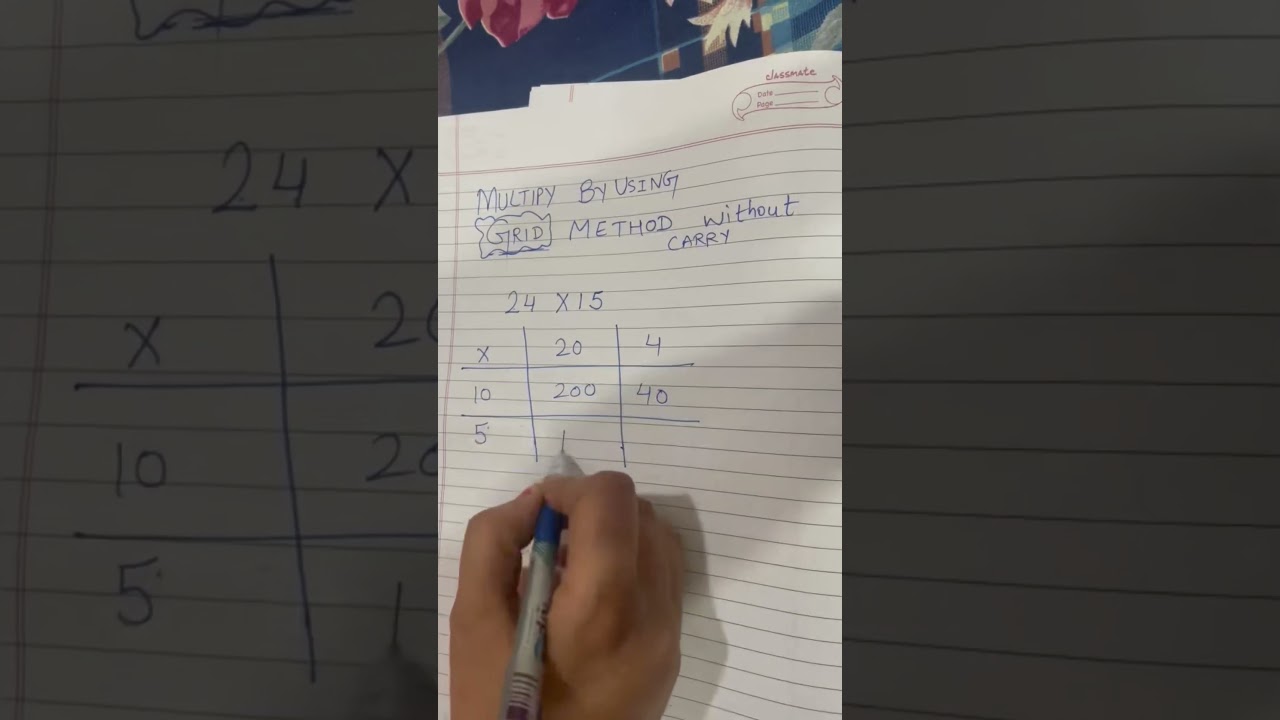 classmate
Date
Page
MULTIPY BY USING
GRID METHOD without
CARRY
24 X 15
X 20 4
10 200 40
5 1